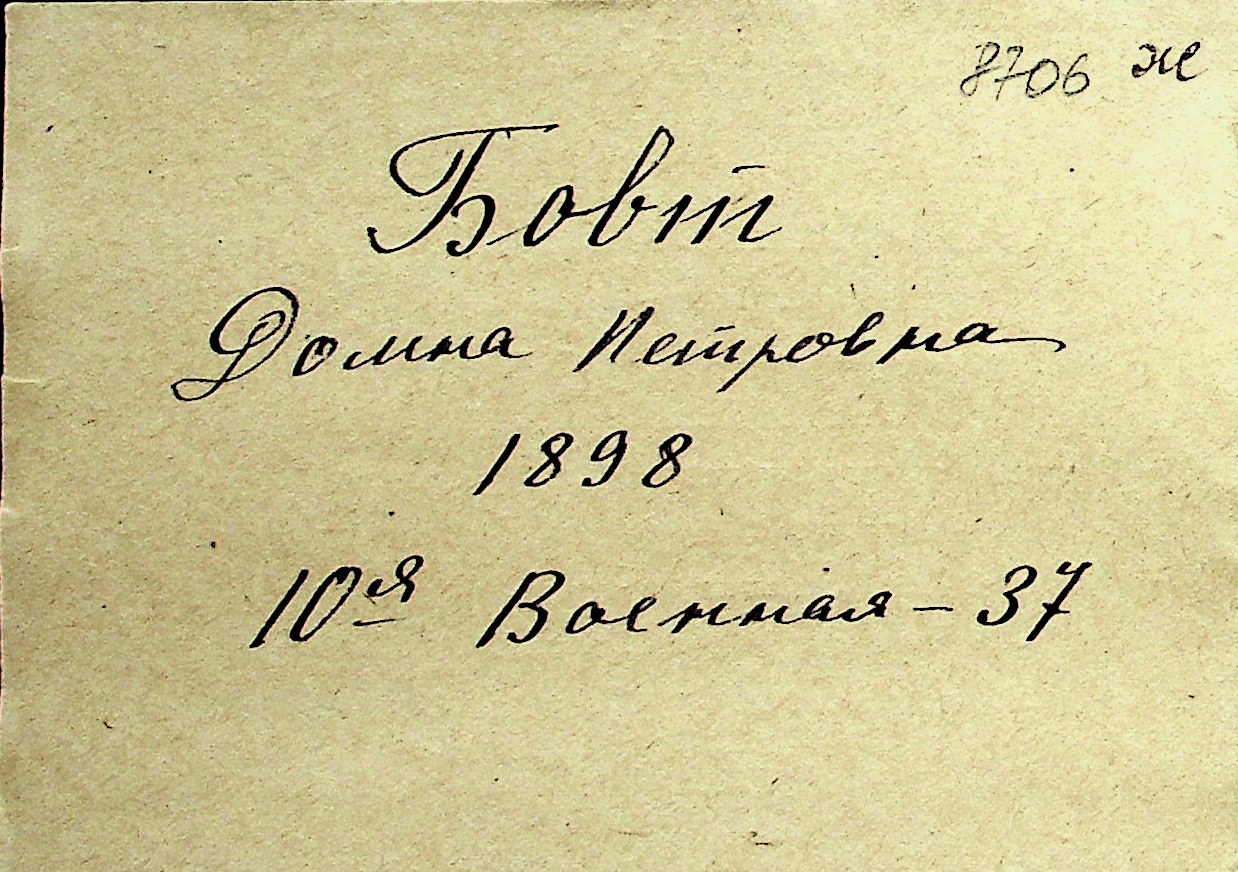 8706 ж
Бовт
Домна Петровна
1898
10я Военная - 37